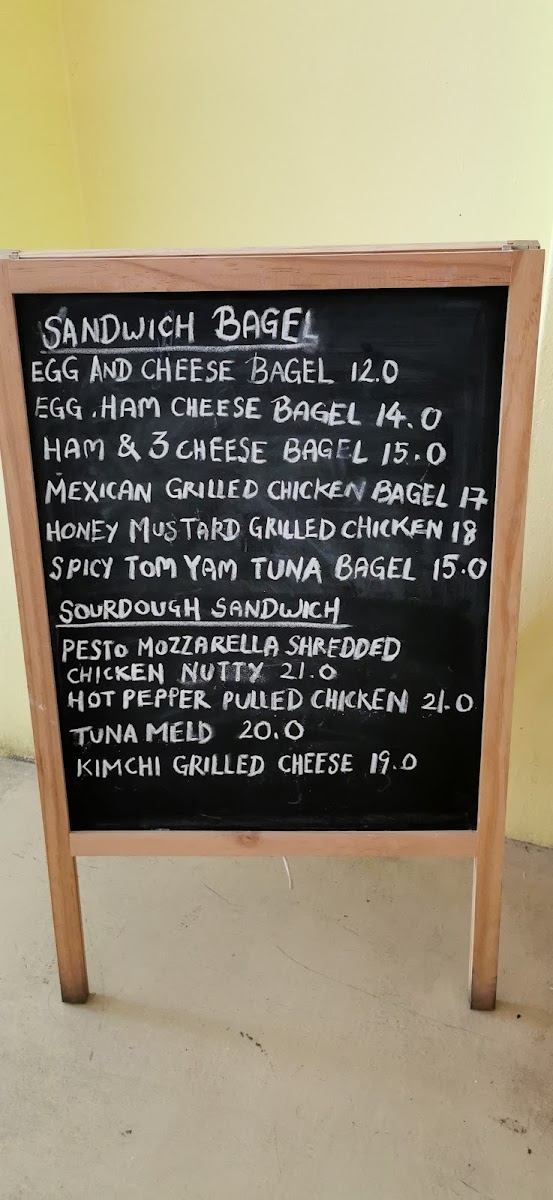 SANDWICH BAGEL
EGG AND CHEESE BAGEL 12.0
EGG .HAM CHEESE BAGEL 14.0
HAM & 3 CHEESE BAGEL 15.0
MEXICAN GRILLED CHICKEN BAGEL 17
HONEY MUSTARD GRILLED CHICKEN 18
SPICY TOM YAM TUNA BAGEL 15.0
SOURDOUGH SANDWICH
PESTO MOZZARELLA SHREDDED
CHICKEN NUTTY 21.0
HOT PEPPER PULLED CHICKEN 21.0
TUNA MELD 20.0
KIMCHI GRILLED CHEESE 19.0